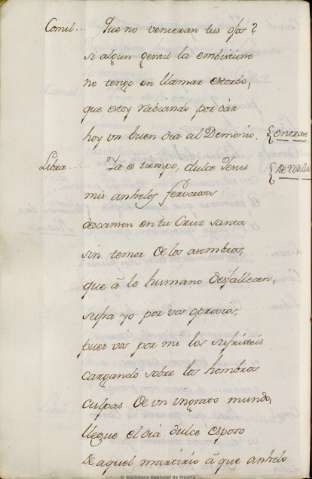 Comic... Que no vencieran tus ojos?
si algun genril la embistiere
no tengo en llamar estorbo,
que estoy rabiando por dar
hoy un buen dia al Demonio. {
Libra... Ya es tiempo, dulce Jesus {
mis anhelos fervorosos
descansen en tu Cruz santa
sin temor de los asombros,
que à lo humano desfallecen,
sufra yo por vos oprovios,
pues vos por mi los sufristeis
cargando sobre los hombros
culpas de un ingrato mundo,
llegue el dia dulce esposo
de aquel martirio à que anhelo